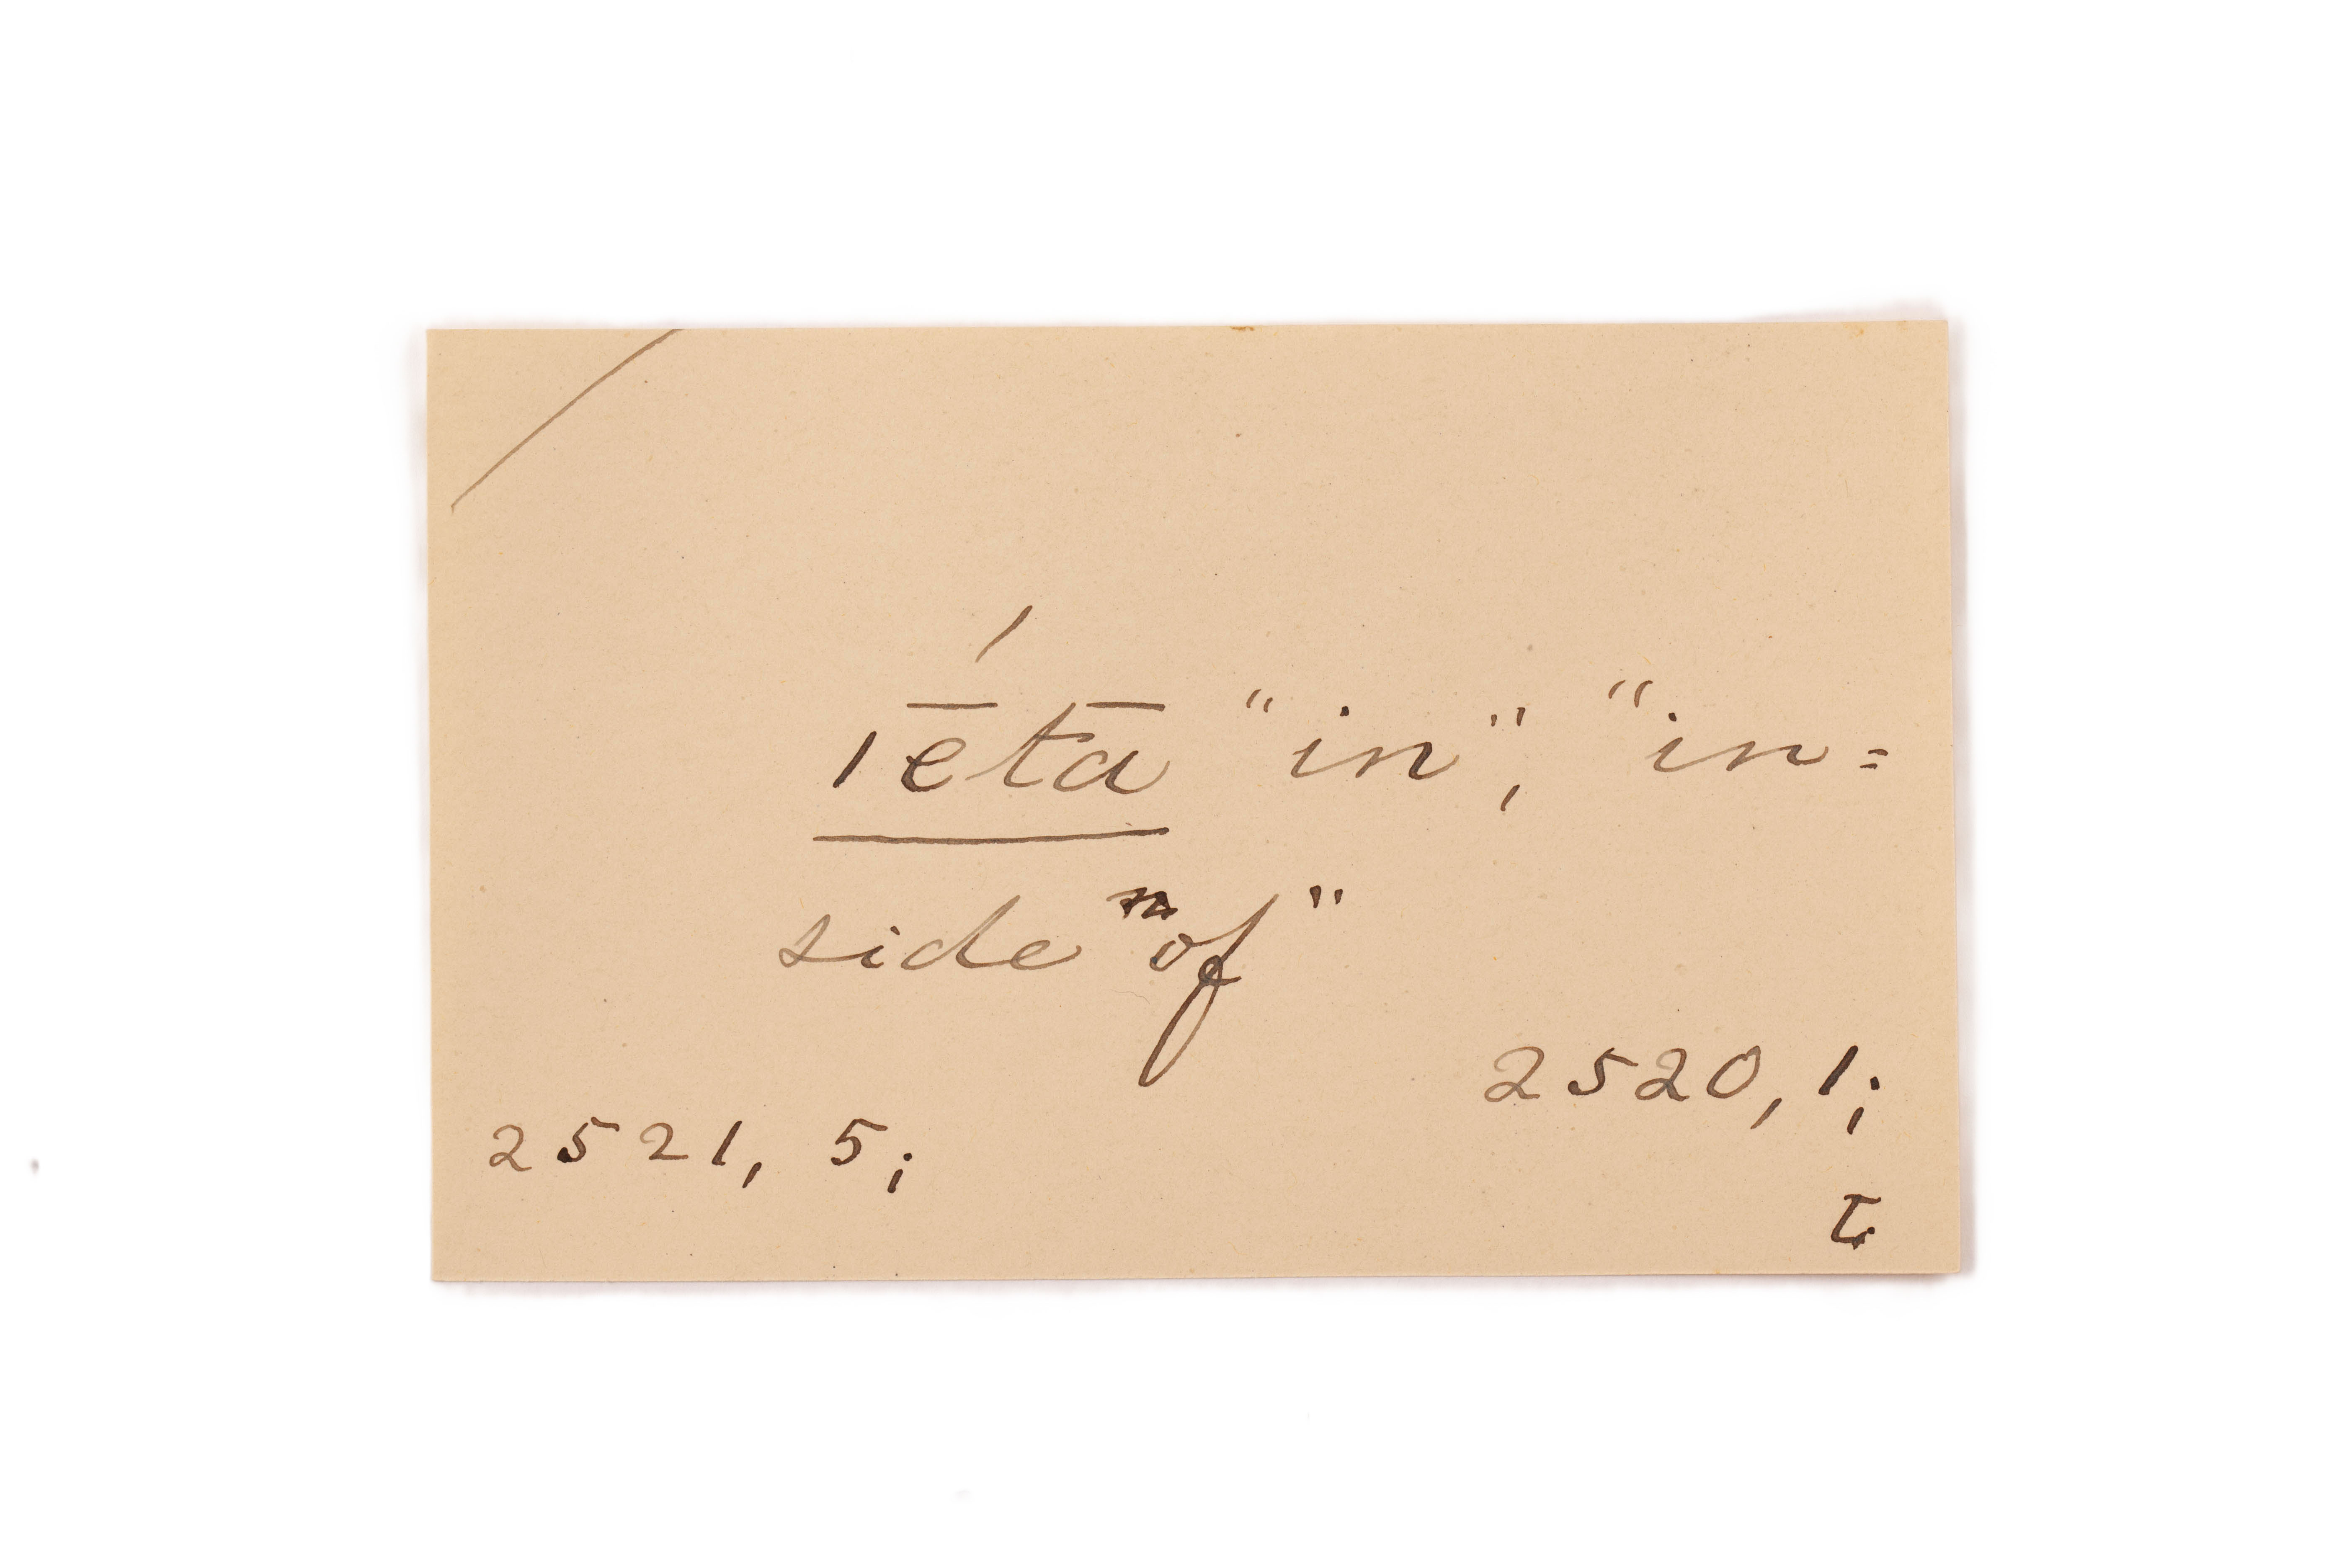 ıḗtā "in", "in=
side of"
2520, 1;
2521, 5;